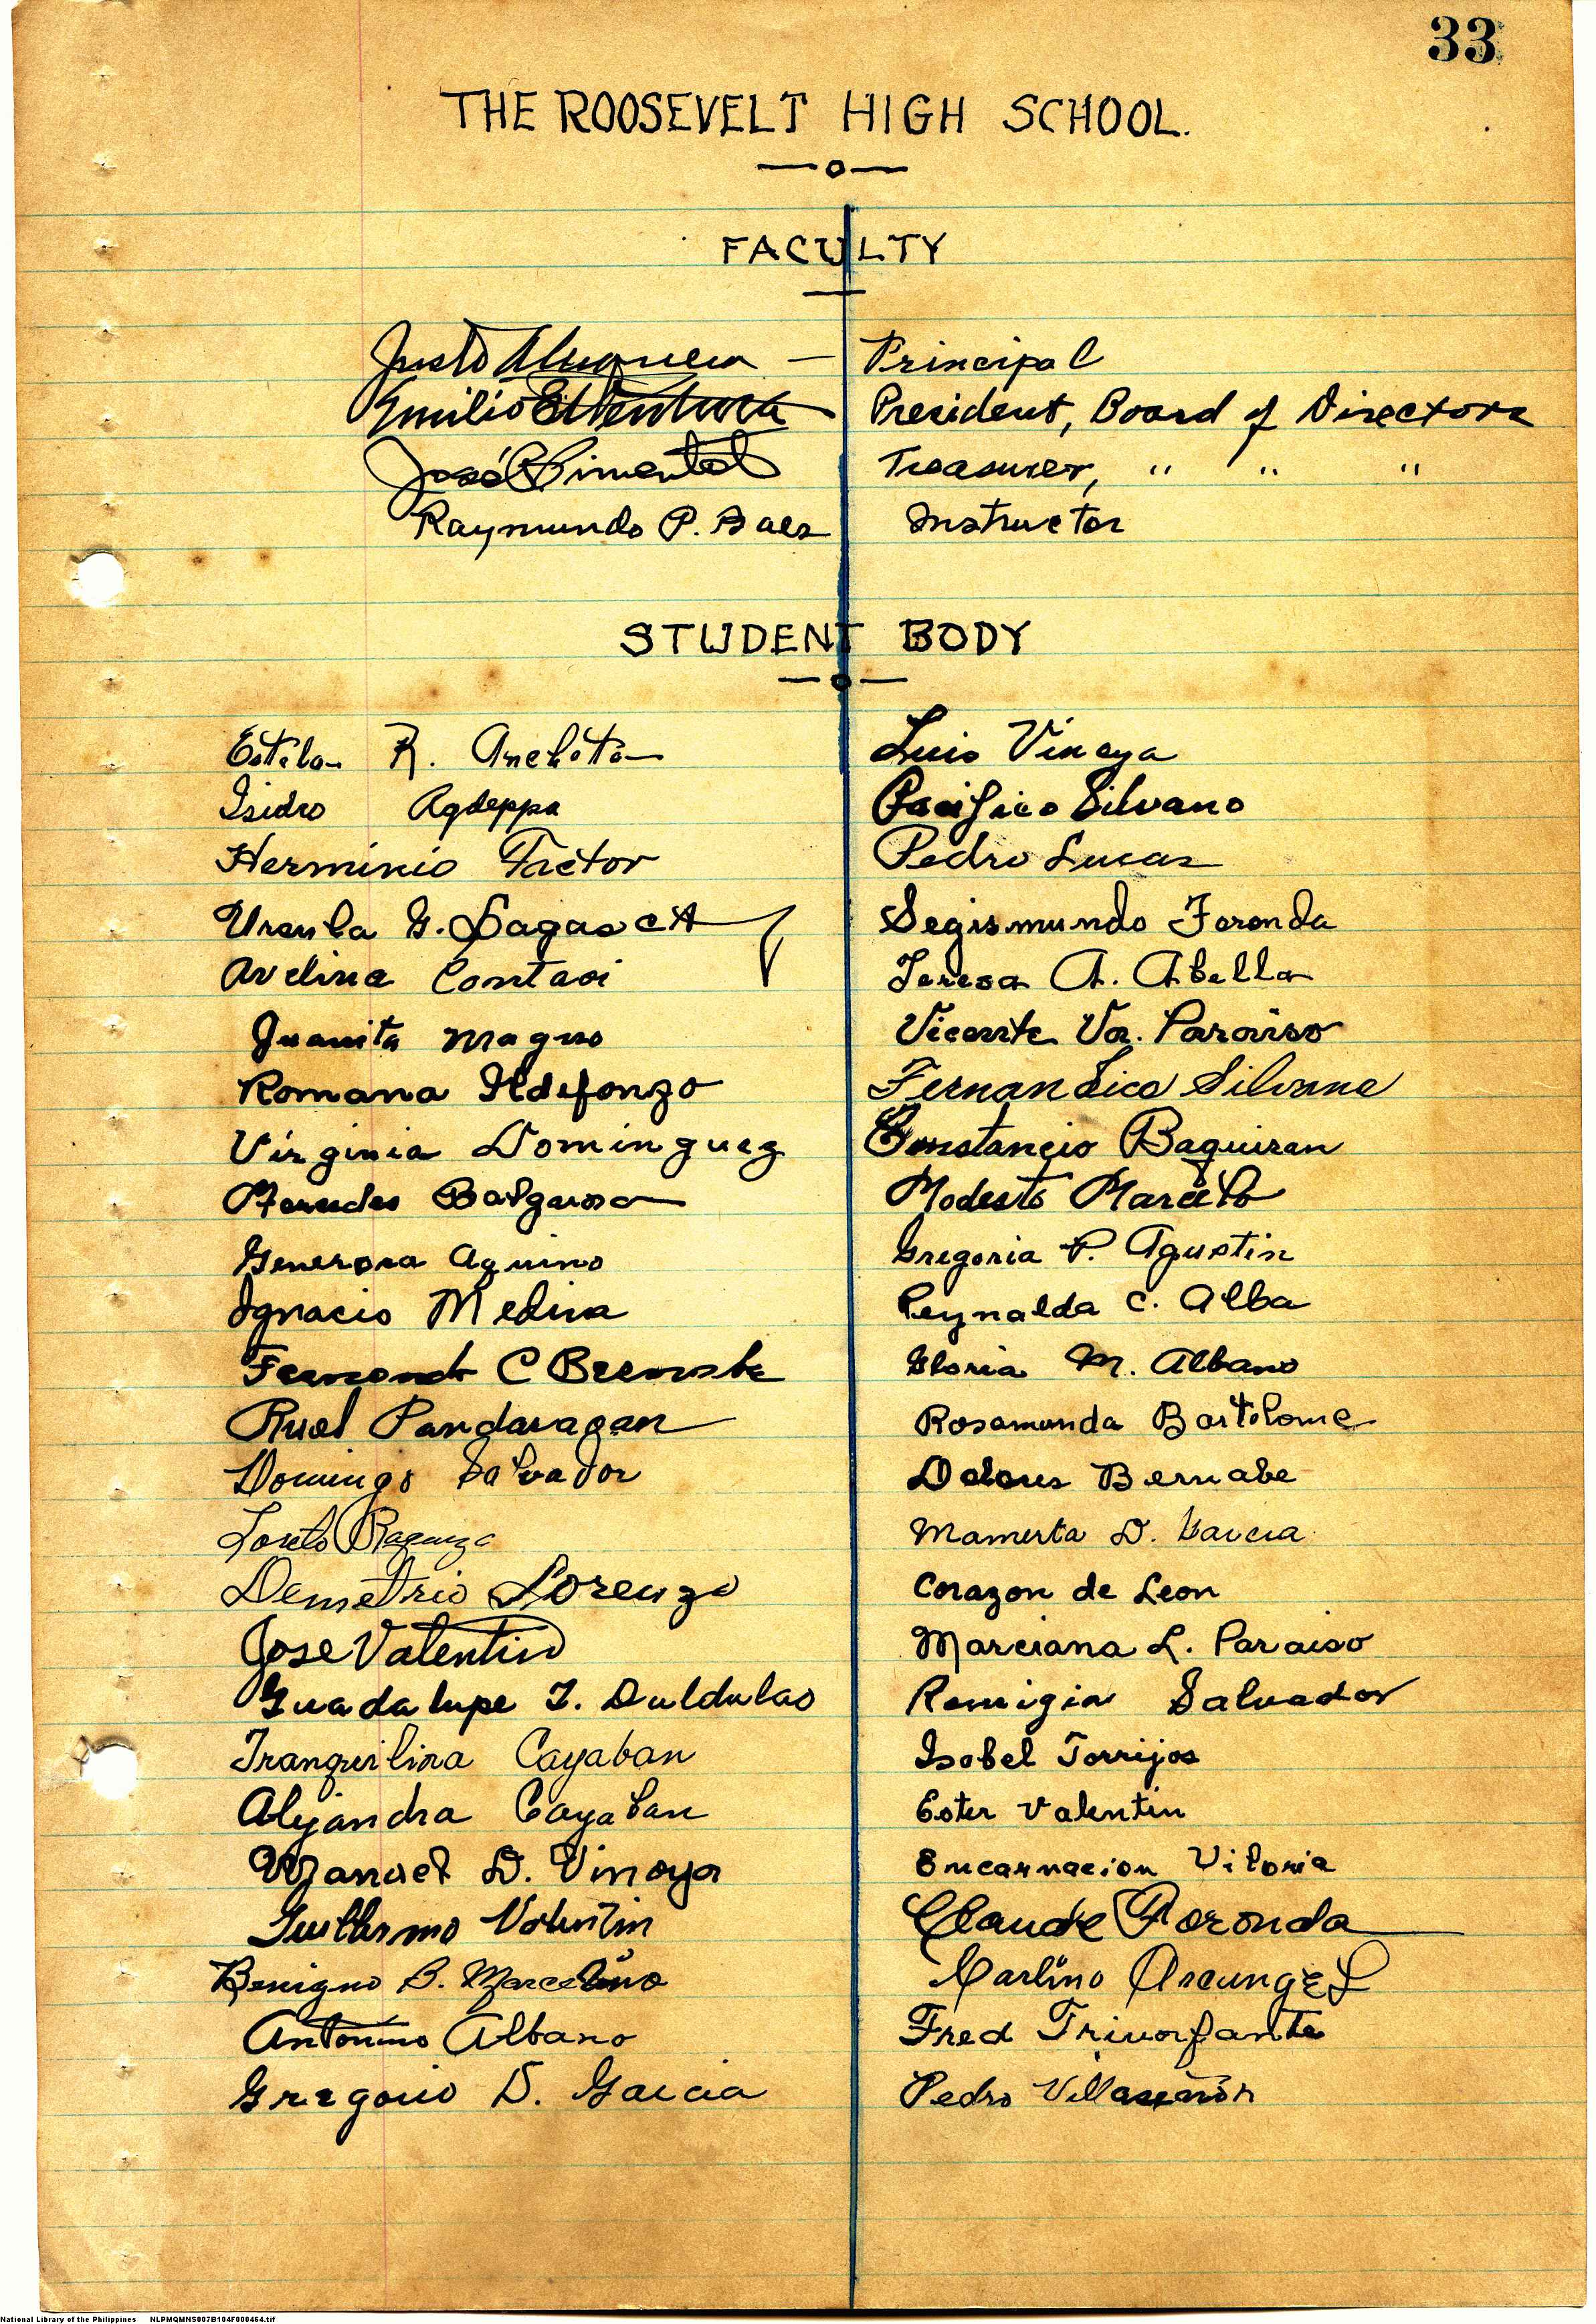 33
THE ROOSEVELT HIGH SCHOOL.
FACULTY
Justo — Principal
Emilio E. Ventura President, Board of Directors
José P. Pimentel Treasurer, " " "
Raymundo P. Baes Instructor
STUDENT BODY
Esteban R. Ancheta
Isidro Agdeppa
Herminio Factor
Ursula G. Dagasca
Avelina
Juanita Magno
Romana Ildefonzo
Virginia Dominguez
Mercedes Balgarosa
Generosa Aquino
Ignacio Medina
C
Ruel Pandaragan
Domingo Salvador
Loreto
Demetrio Lorenzo
Jose Valentin
Guadalupe I. Duldulao
Tranquilina Cayaban
Alejandra Cayaban
Manuel D. Vinoya
Guillermo Valentin
Benigno B. Marcelino
Antonino Albano
Gregorio D. Garcia
Luis Vinoya
Pacifico Silvano
Pedro Lucas
Segismundo Foronda
Teresa A. Abella
Vicente Va. Paraiso
Fernandico Silvano
Constancio Baquiran
Modesto Marcelo
Gregoria P. Agustin
Reynalda C. Alba
Gloria M. Albano
Rosamunda Bartolome
Dolores Bernabe
Mamerta D. Garcia
Corazon de Leon
Marciana L. Paraiso
Remigia Salvador
Isabel Torrijos
Ester Valentin
Encarnacion Viloria
Claude Foronda
Marlino Arcangel
Fred
Pedro
National Library of the Philippines NLPMQMNS007B104F000464.tif